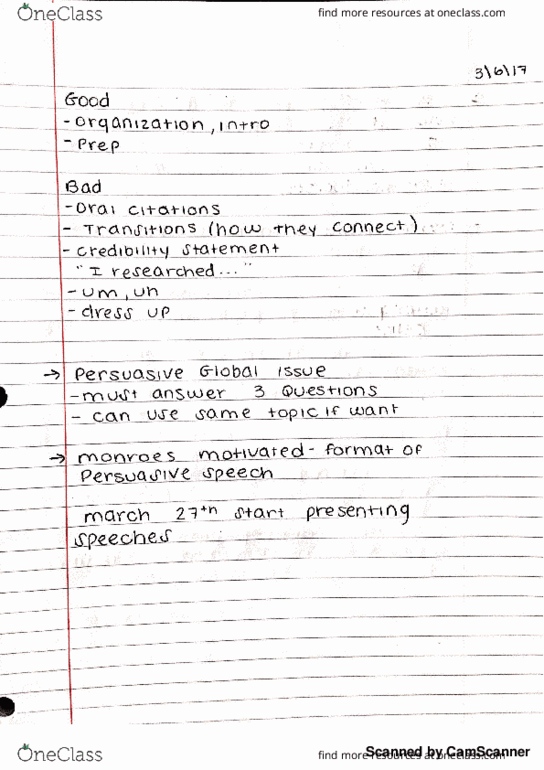 OneClass
find more resources at oneclass.com
3\6\17
Good
- organization, intro
- Prep
Bad
- Oral citations
- Transitions (how they connect)
- credibility statement
"I researched..."
- um, uh
- dress up
→ Persuasive Global issue
- must answer 3 Questions
- can use same topic if want
→ monroes motivated - format of
Persuasive speech
march 27th start presenting
speeches
OneClass
find more resources at oneclass.com
Scanned by CamScanner